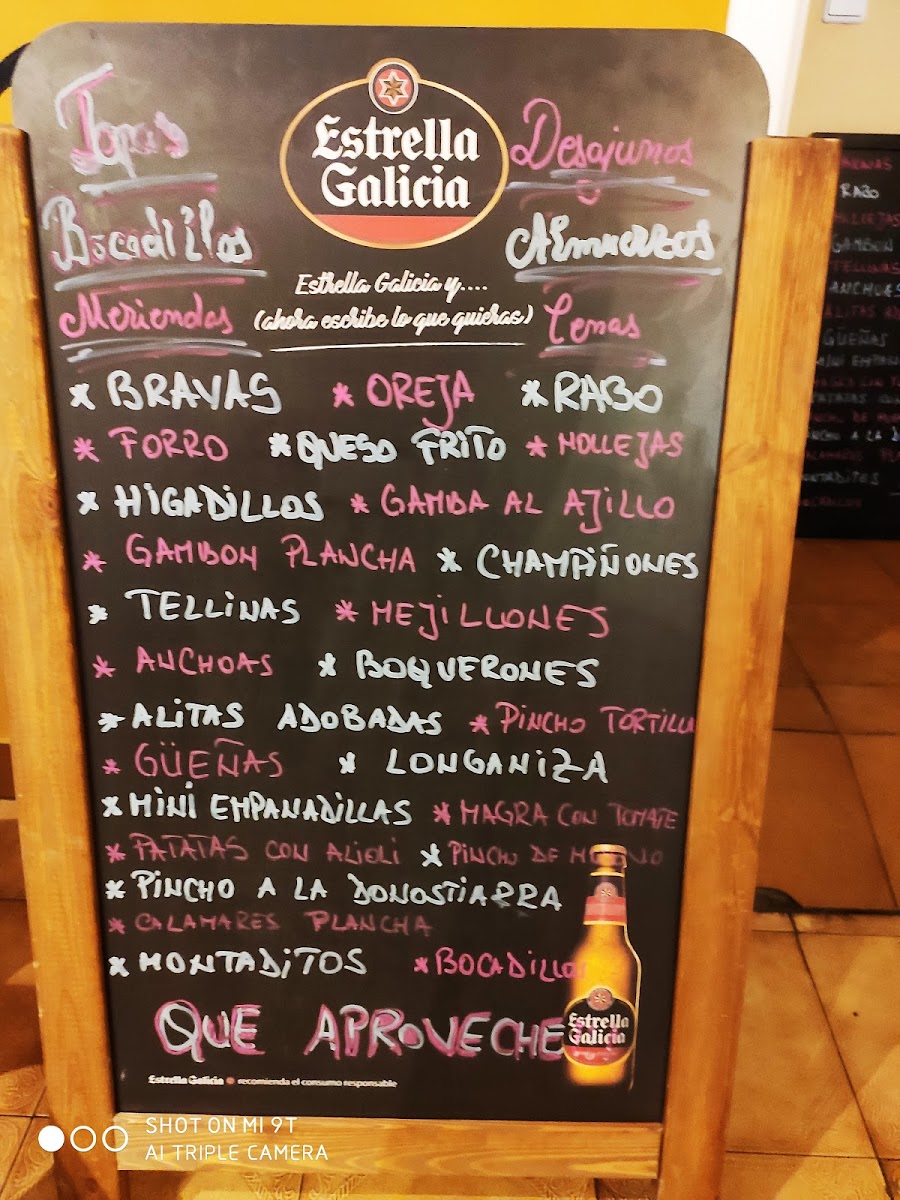 Tapas
Estrella
Galicia
Desayunos
Bocadillos
Almuerzos
Meriendas
Estrella Galicia y....
(ahora escribe lo que quieras)
Cenas
* BRAVAS * OREJA * RABO
* FORRO * QUESO FRITO * MOLLEJAS
* HIGADILLOS * GAMBA AL AJILLO
* GAMBON PLANCHA * CHAMPIÑONES
* TELLINAS * MEJILLONES
* ANCHOAS * BOQUERONES
* ALITAS ADOBADAS * PINCHO TORTILLA
* GÜEÑAS * LONGANIZA
* MINI EMPANADILLAS * MAGRA CON TOMATE
* PATATAS CON ALIOLI * PINCHO DE
* PINCHO A LA DONOSTIARRA
* CALAMARES PLANCHA
* MONTADITOS * BOCADILLOS
QUE APROVECHE
Estrella
Galicia
Estrella Galicia recomienda el consumo responsable
SHOT ON MI 9T
AI TRIPLE CAMERA
RABO
GAMBON
TELLINAS
ANCHOAS
GÜEÑAS